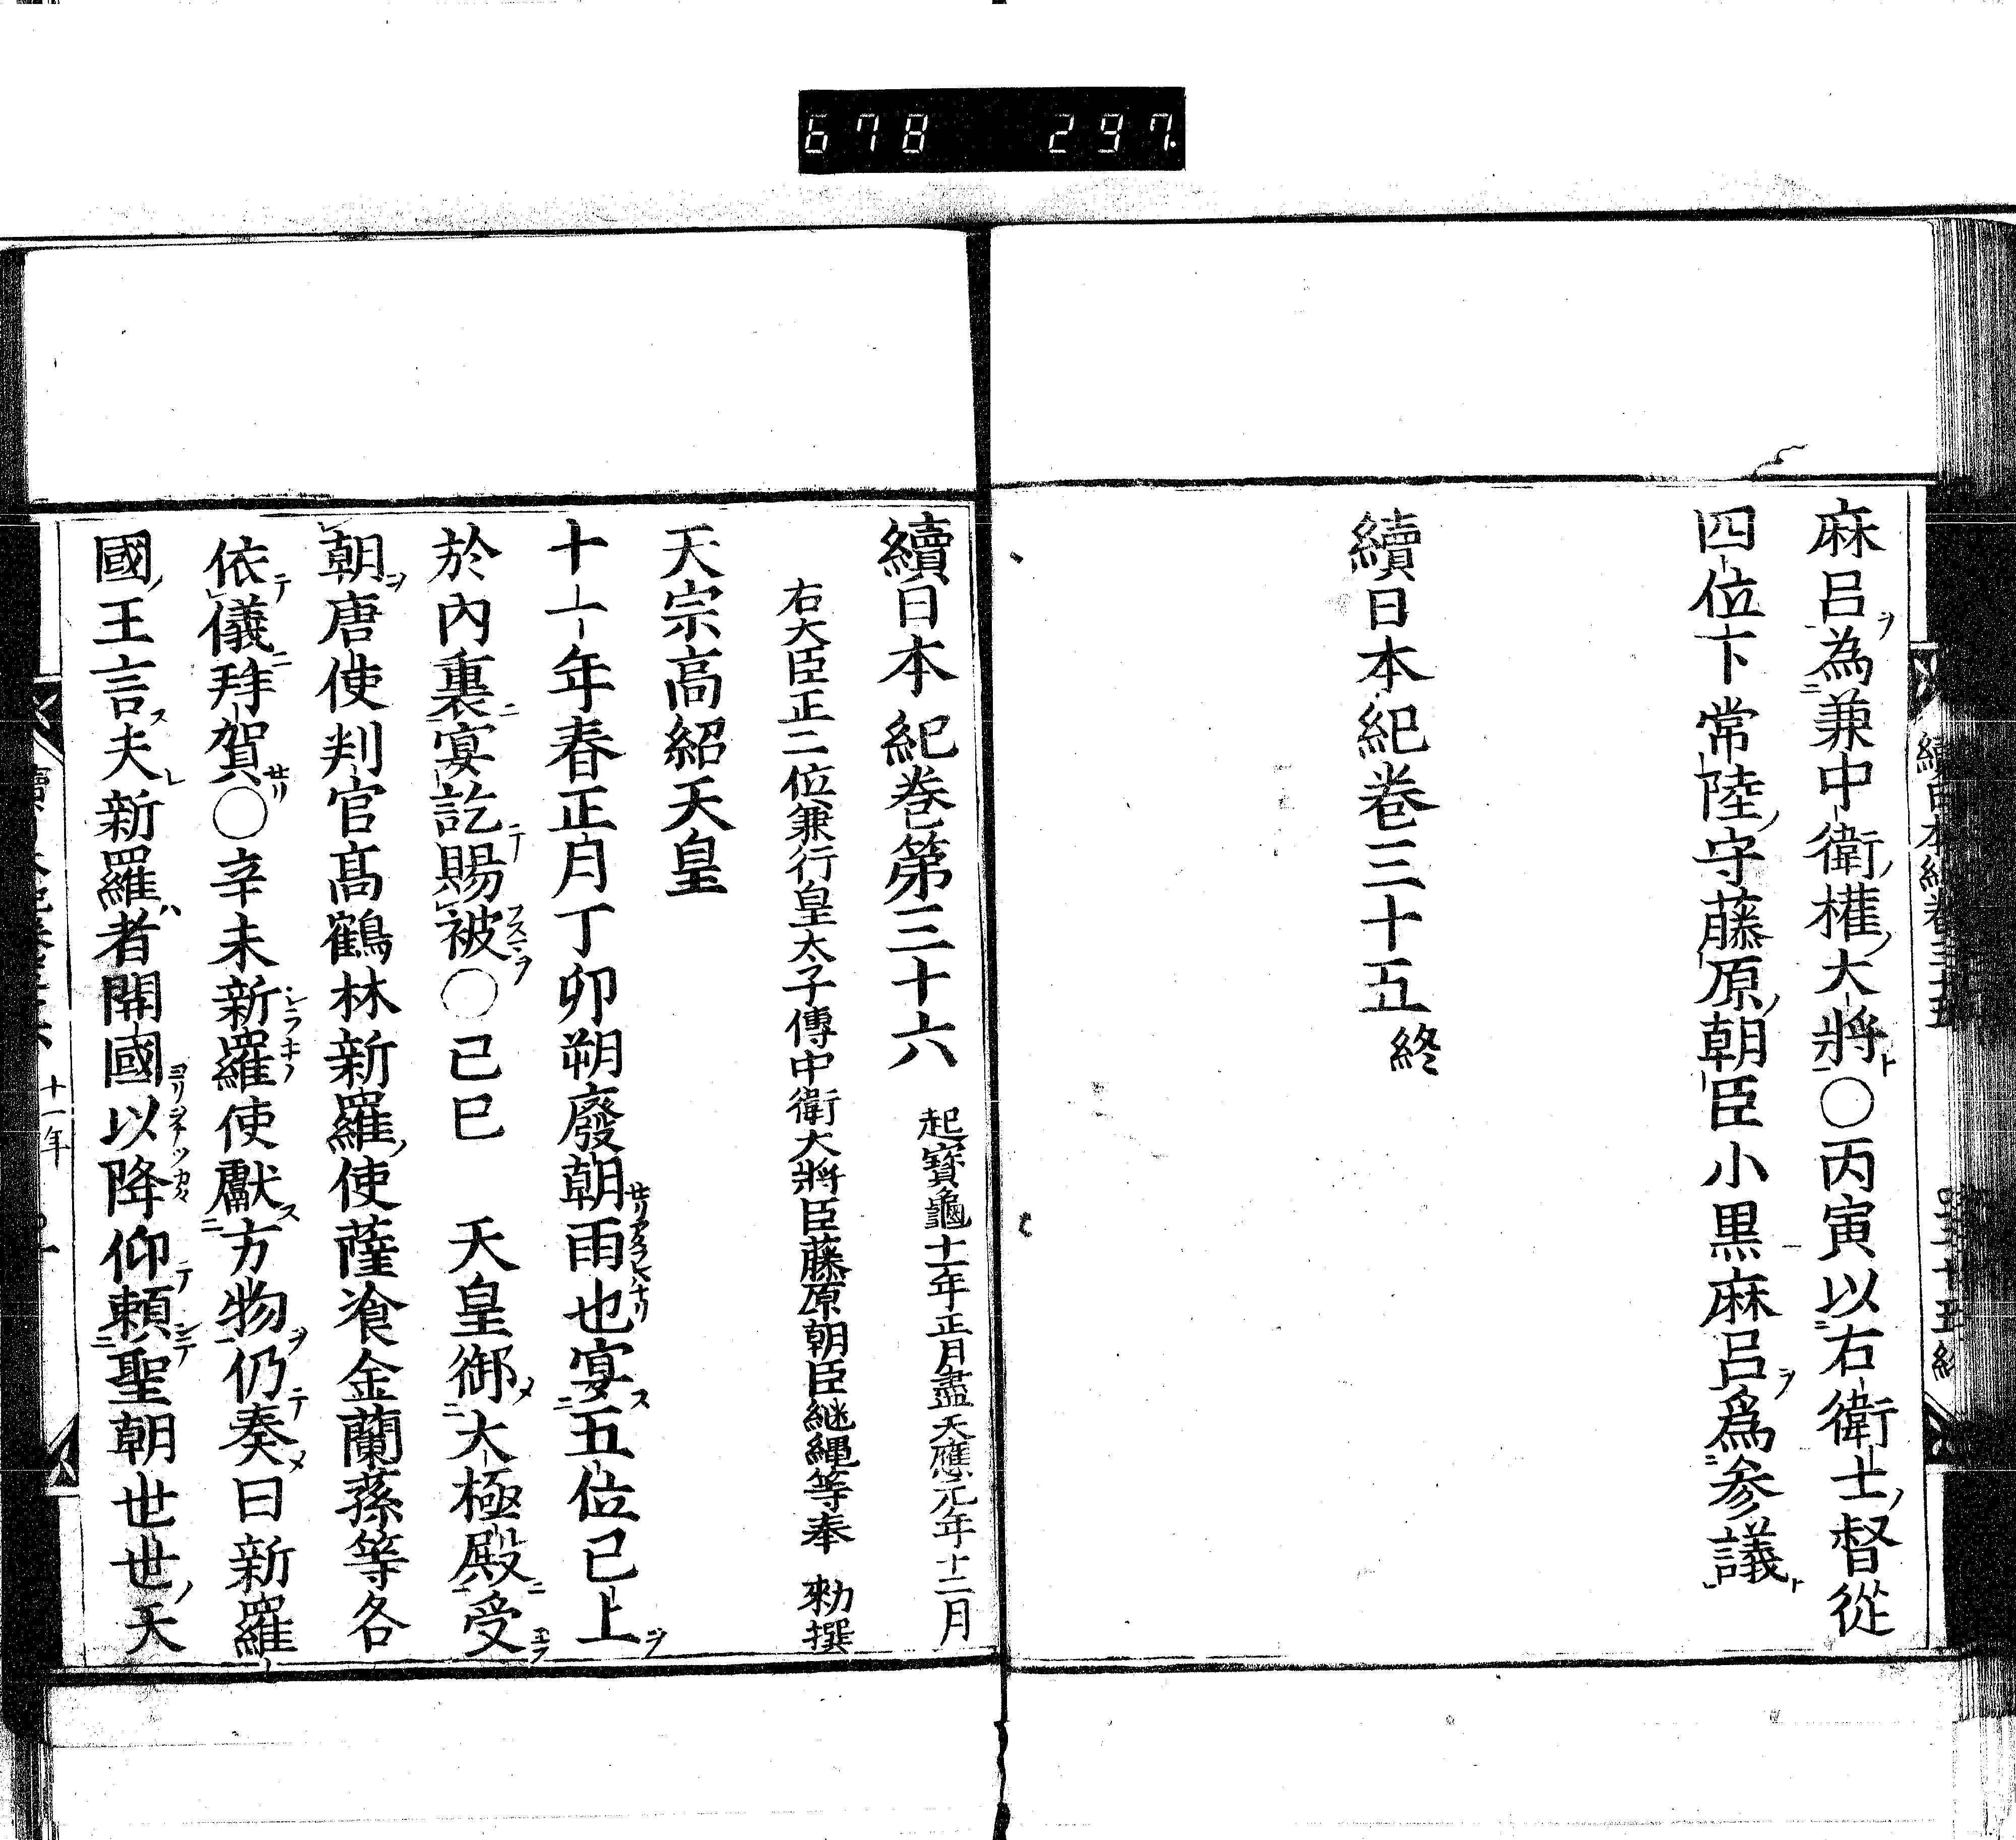 678 297
麻呂為兼中衛權大將〇丙寅以右衛士督從
四位下常陸守藤原朝臣小黒麻呂爲参議
續日本紀卷三十五終
續日本紀卷第三十六 起寶龜十一年正月盡天應元年十二月
右大臣正二位兼行皇太子傳中衛大將臣藤原朝臣継縄等奉 勅撰
天宗高紹天皇
十一年春正月丁卯朔廢朝雨也宴五位已上
於內裏宴訖賜被〇己巳 天皇御大極殿受
朝唐使判官髙鶴林新羅使薩飡金蘭蓀等各
依儀拜賀〇辛未新羅使獻方物仍奏曰新羅
國王言夫新羅者開國以降仰頼聖朝世世天
十一年